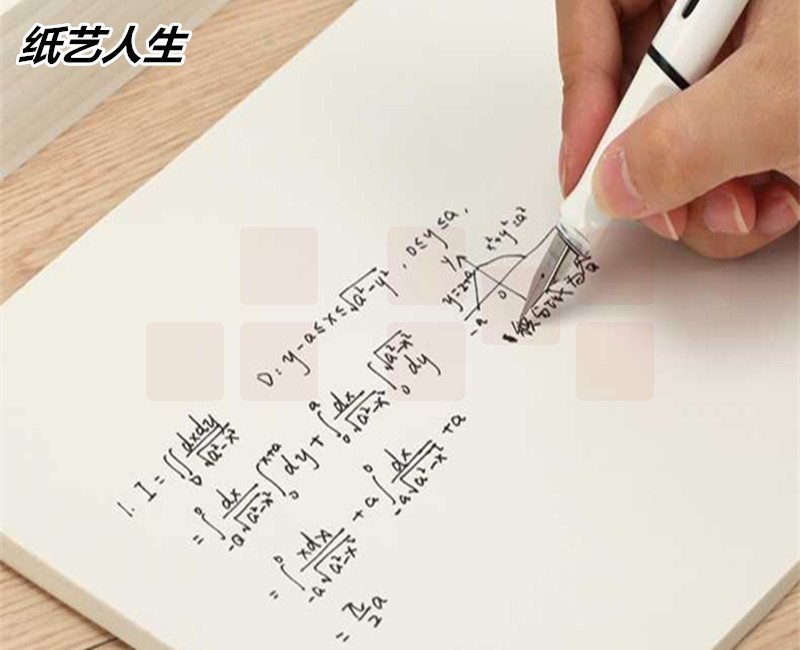 纸艺人生
D: y-a≤x≤√(a²-y²), 0≤y≤a,
x²+y²=a²
y
y=x+a
-a 0
1. I = ∬_D dxdy/√(a²-x²)
= ∫_{-a}^{0} dx/√(a²-x²) ∫_{0}^{x+a} dy + ∫_{0}^{a} dx/√(a²-x²) ∫_{0}^{√(a²-x²)} dy
= ∫_{-a}^{0} xdx/√(a²-x²) + a∫_{-a}^{0} dx/√(a²-x²) + a
= π/2 a